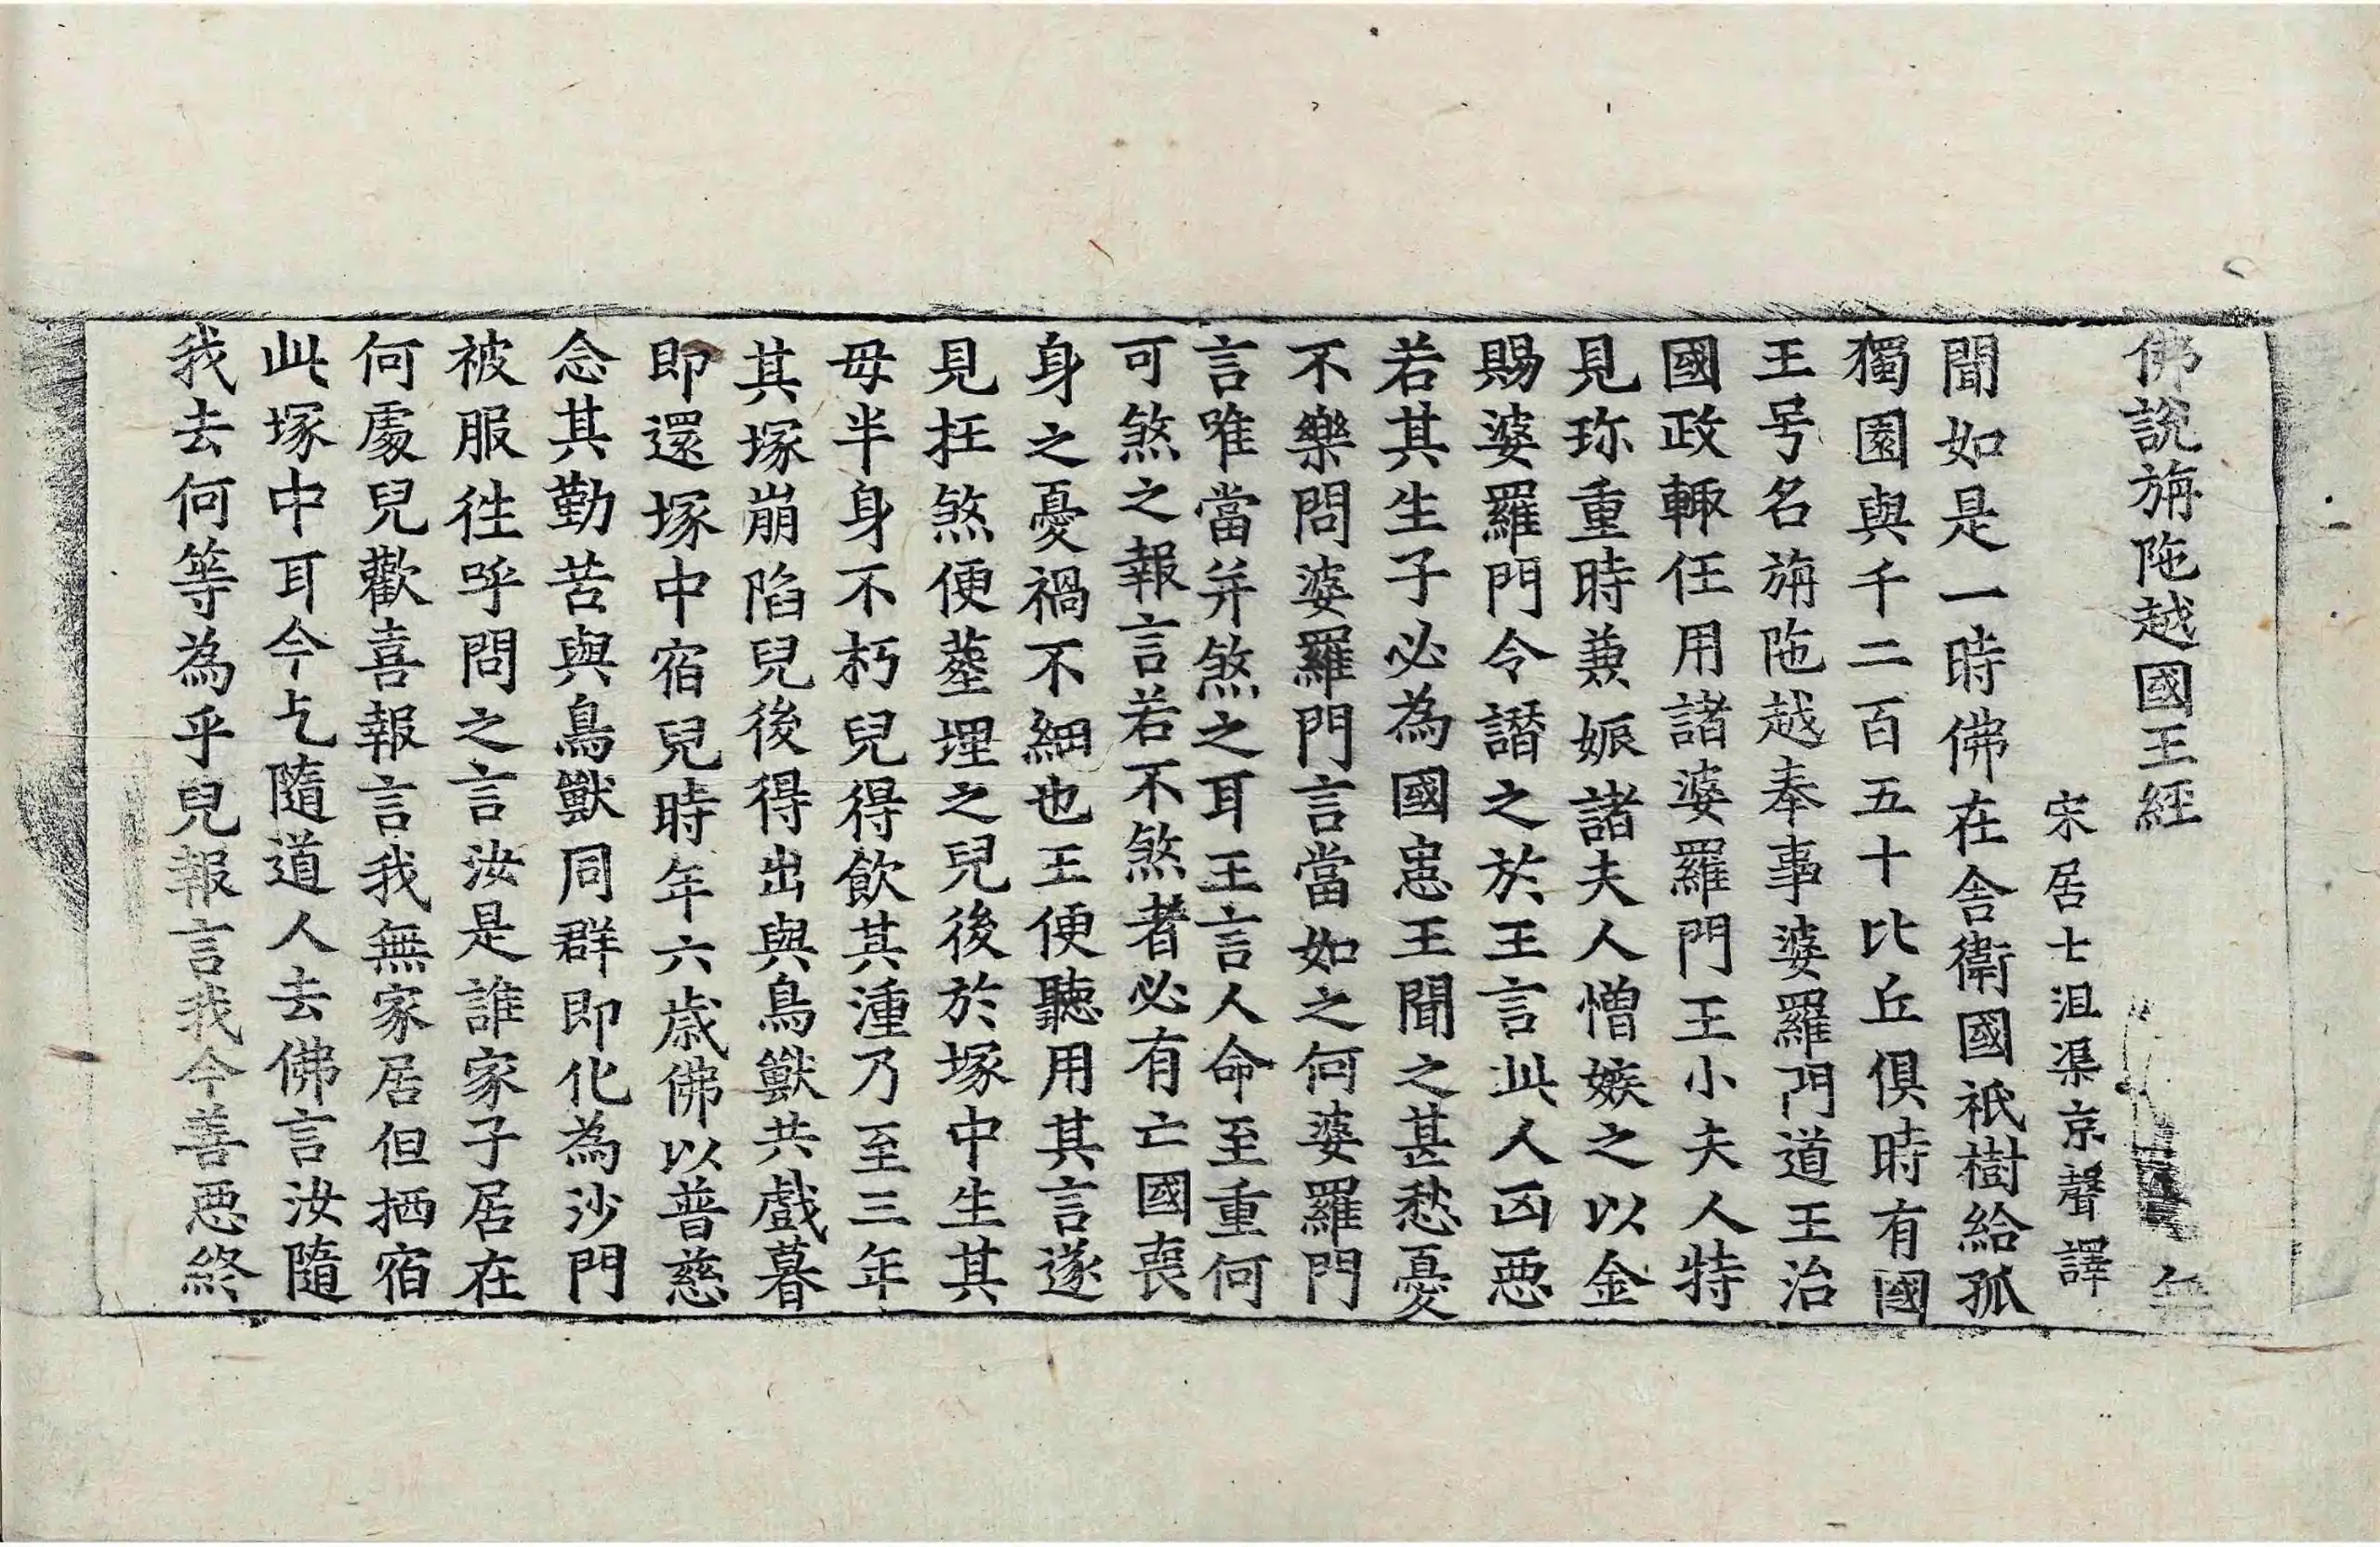 佛說旃陁越國王經 無
宋居士沮渠京聲譯
聞如是一時佛在舎衛國祇樹給孤
獨園與千二百五十比丘俱時有國
王号名旃陁越奉事婆羅門道王治
國政輙任用諸婆羅門王小夫人特
見珎重時兼娠諸夫人憎嫉之以金
賜婆羅門令譖之於王言此人凶惡
若其生子必為國患王聞之甚愁憂
不樂問婆羅門言當如之何婆羅門
言唯當并煞之耳王言人命至重何
可煞之報言若不煞者必有亡國喪
身之憂禍不細也王便聽用其言遂
見抂煞便葬埋之兒後於塚中生其
母半身不朽兒得飲其湩乃至三年
其塚崩陷兒後得出與鳥獸共戲暮
即還塚中宿兒時年六歲佛以普慈
念其勤苦與鳥獸同群即化為沙門
被服徃呼問之言汝是誰家子居在
何處兒歡喜報言我無家居但栖宿
此塚中耳今乞隨道人去佛言汝隨
我去何等為乎兒報言我今善惡終